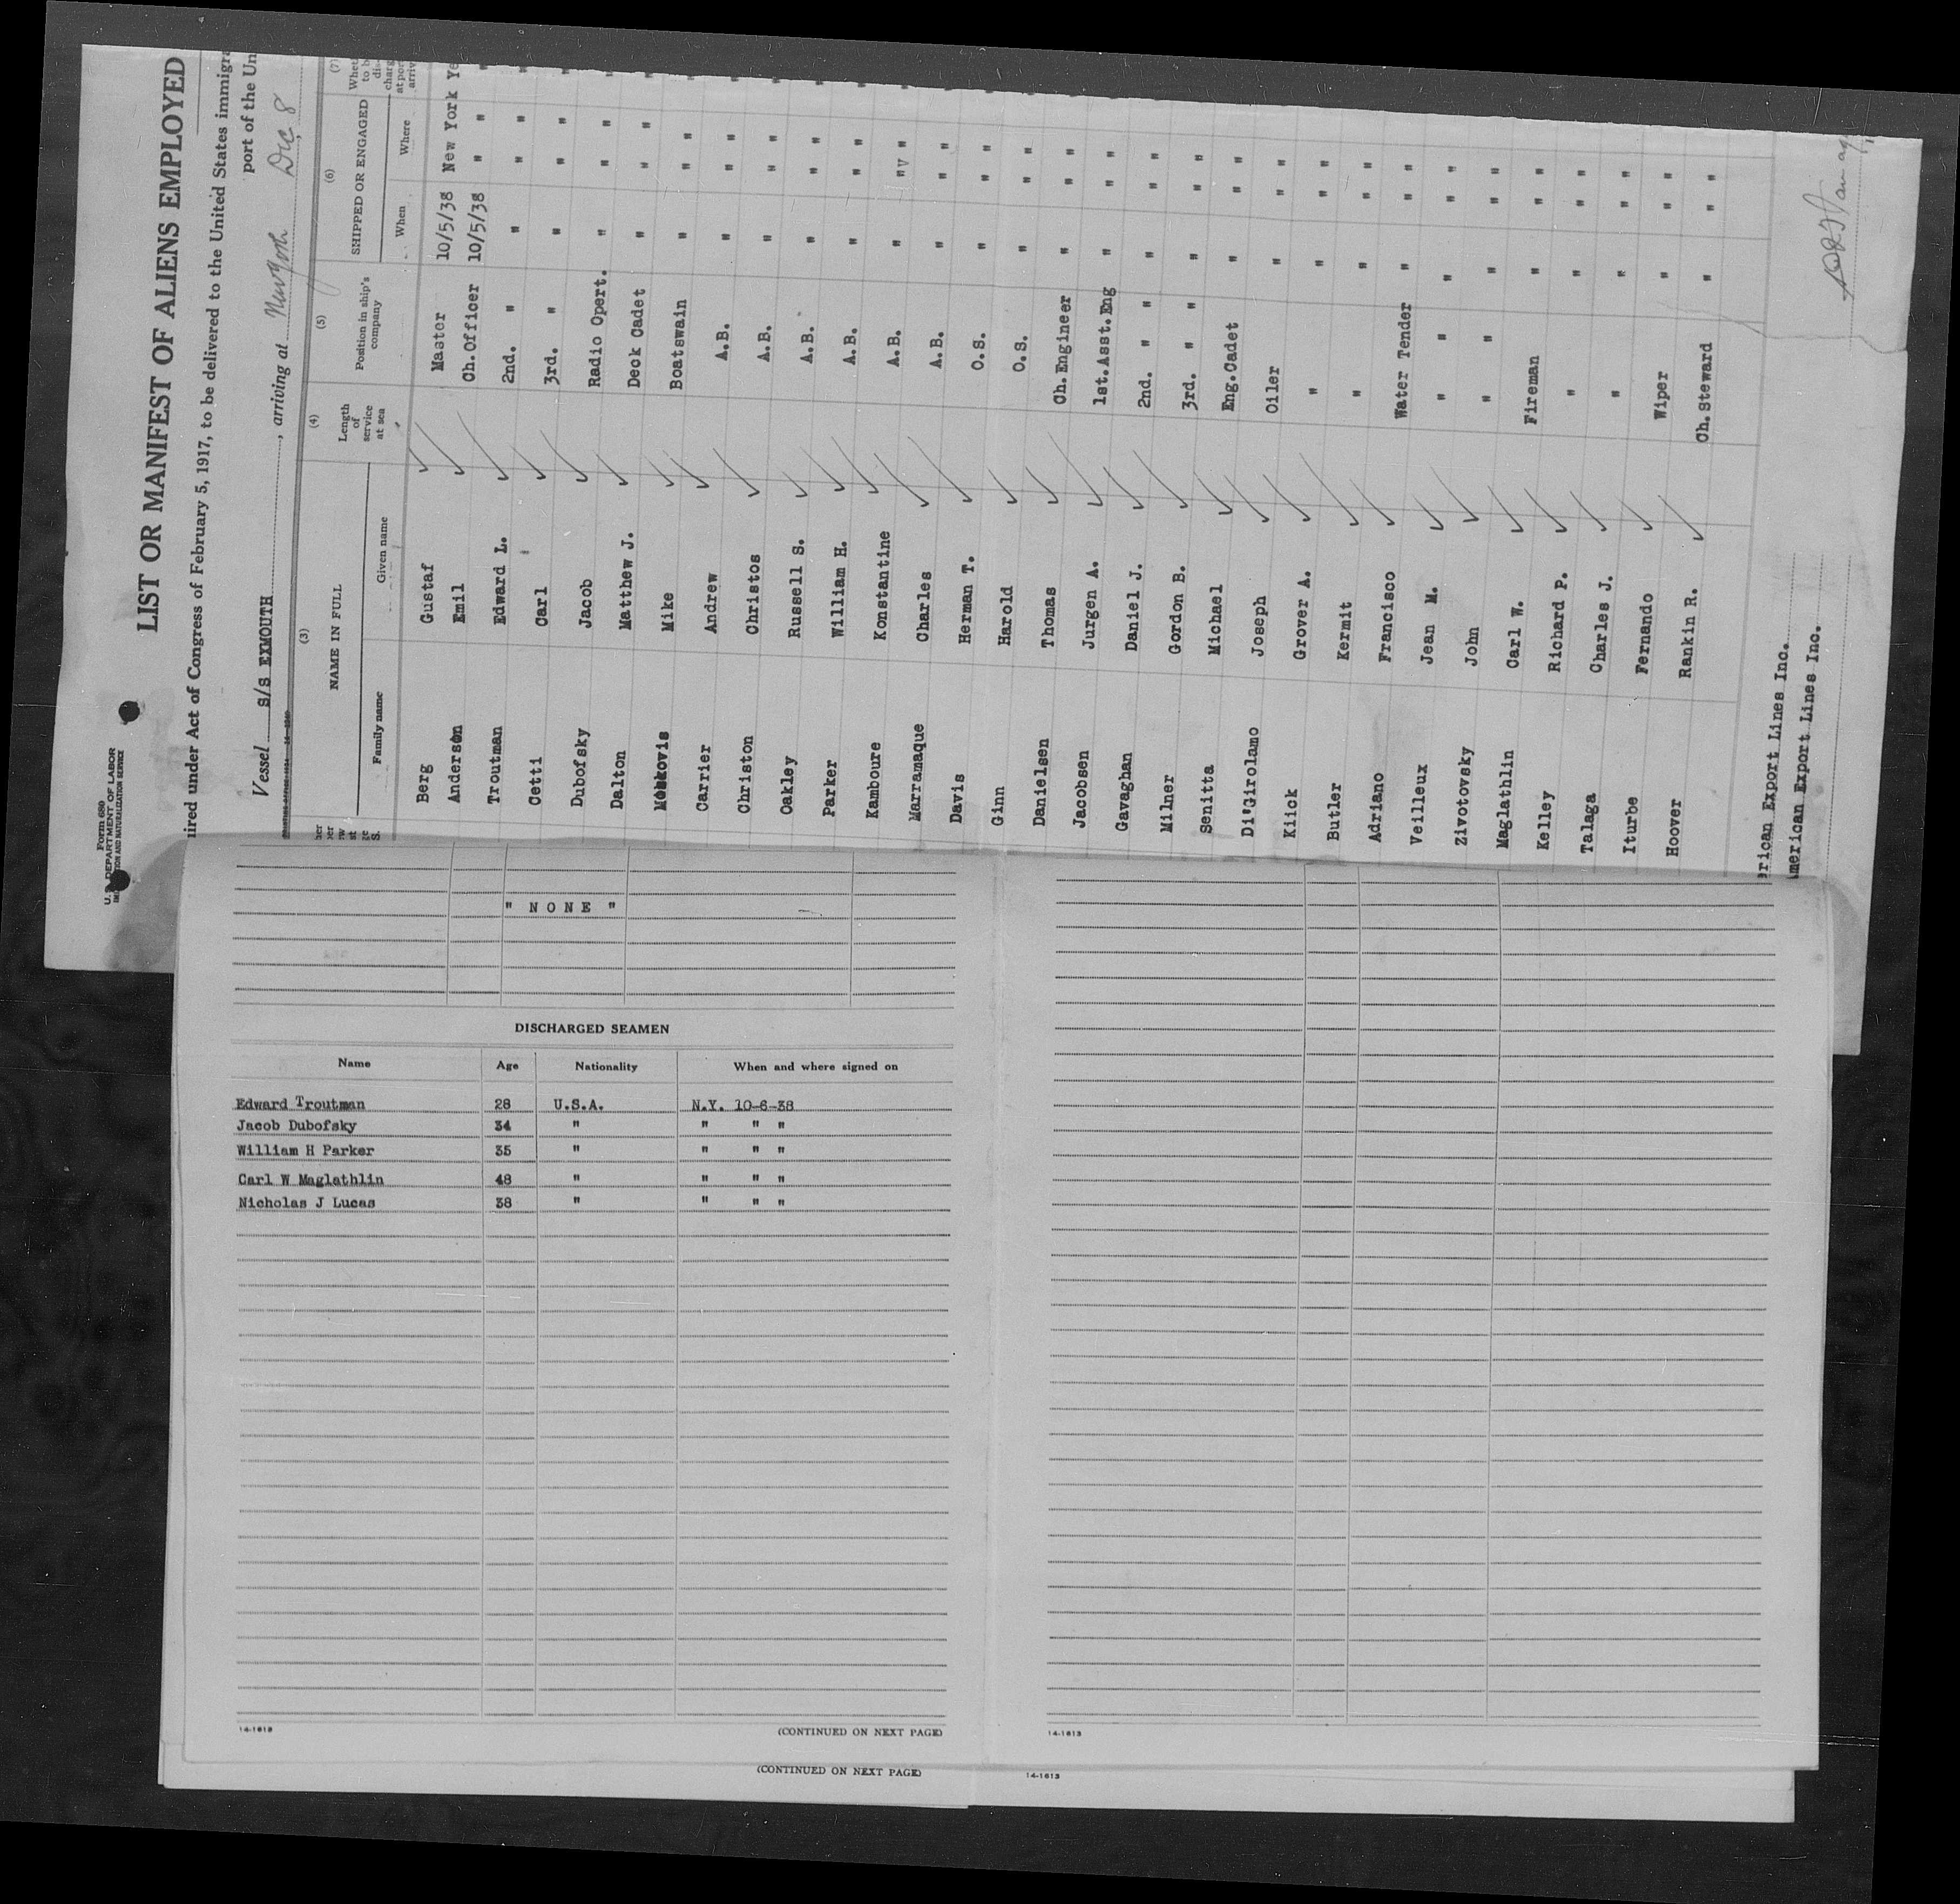 Form 680
U. S. DEPARTMENT OF LABOR
IMMIGRATION AND NATURALIZATION SERVICE
LIST OR MANIFEST OF ALIENS EMPLOYED
ired under Act of Congress of February 5, 1917, to be delivered to the United States immigra
port of the Un
Vessel S/S EXMOUTH, arriving at New York Dec 8
(3) (4) (5) (6) (7)
NAME IN FULL Length of service at sea Position in ship's company SHIPPED OR ENGAGED
Family name Given name When Where
Berg Gustaf Master 10/5/38 New York Ye
Anderson Emil Ch.Officer 10/5/38 " " "
Troutman Edward L. 2nd. " " " " "
Cetti Carl 3rd. " " " " "
Dubofsky Jacob Radio Opert. " " " "
Dalton Matthew J. Deck Cadet " " " "
Mike Boatswain " " "
Carrier Andrew A.B. " " " "
Christon Christos A.B. " " "
Oakley Russell S. A.B. " " "
Parker William H. A.B. " " "
Kamboure Konstantine A.B. " " "
Marramaque Charles A.B. " " "
Davis Herman T. O.S. " " "
Ginn Harold O.S. " " "
Danielsen Thomas Ch.Engineer " " "
Jacobsen Jurgen A. 1st.Asst.Eng " " "
Gavaghan Daniel J. 2nd. " " " " "
Milner Gordon B. 3rd. " " " " "
Senitta Michael Eng.Cadet " " "
Di'Girolamo Joseph Oiler " " "
Kiick Grover A. " " " "
Butler Kermit " " " "
Adriano Francisco Water Tender " " "
Veilleux Jean M. " " " " "
Zivotovsky John " " " " "
Maglathlin Carl W. Fireman " " "
Kelley Richard P. " " " "
Talaga Charles J. " " " "
Iturbe Fernando Wiper " " "
Hoover Rankin R. Ch.Steward " " "
erican Export Lines Inc.
merican Export Lines Inc.
" N O N E "
DISCHARGED SEAMEN
Name Age Nationality When and where signed on
Edward Troutman 28 U.S.A. N.Y. 10-6-38
Jacob Dubofsky 34 " " " "
William H Parker 35 " " " "
Carl W Maglathlin 48 " " " "
Nicholas J Lucas 38 " " " "
14-1613 (CONTINUED ON NEXT PAGE) 14-1613
(CONTINUED ON NEXT PAGE) 14-1613